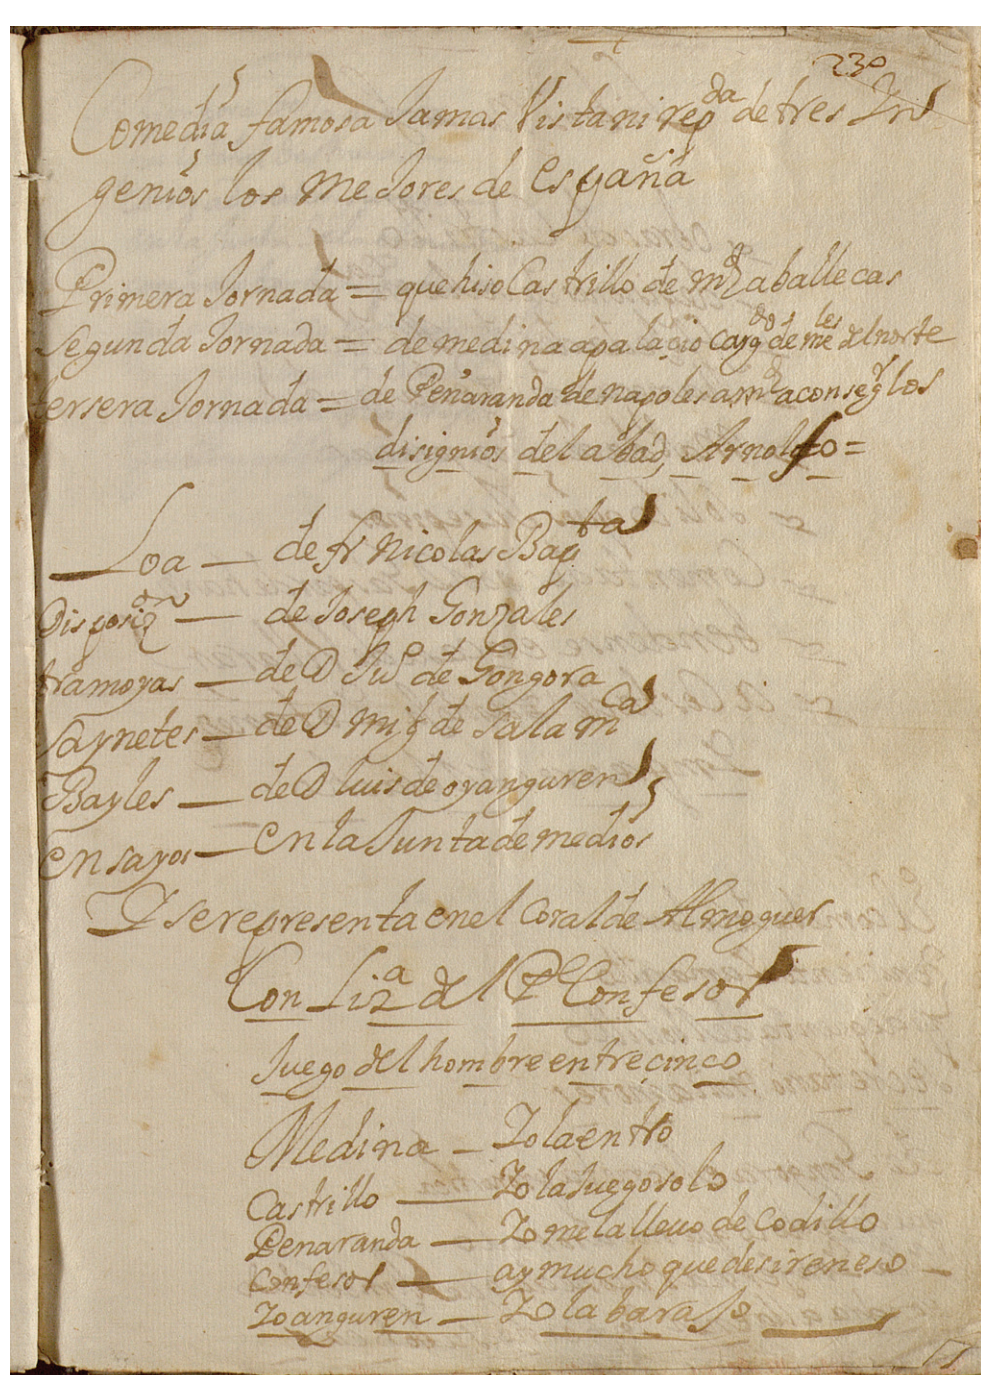 230
Comedia famosa Jamas Vista ni repda de tres In
genios los meJores de España
Primera Jornada = que hiso Castrillo de md a ballecas
segunda Jornada = de medina a palacio cargdo de mēles del norte
tersera Jornada = de Peñaranda de napoles a md a conseg los
disignios del abad, Arnolfo =
Loa — de fr nicolas Bapta
Disposizon — de Joseph Gonzales
tramoyas — de D Juo de Gongora
saynetes — de D migl de salamca
Bayles — de D luis de oyanguren
ensayos — en la Junta de medios
Y se representa en el coral de Almoguer
Con Liza del Pe Confesor
Juego del hombre entre cinco
Medina — Yo la entro
Castrillo — Yo la Juego solo
Penaranda — Yo me la lleuo de codillo
Confesor — ay mucho que desir en eso —
Yoanguren — Yo la baraJo